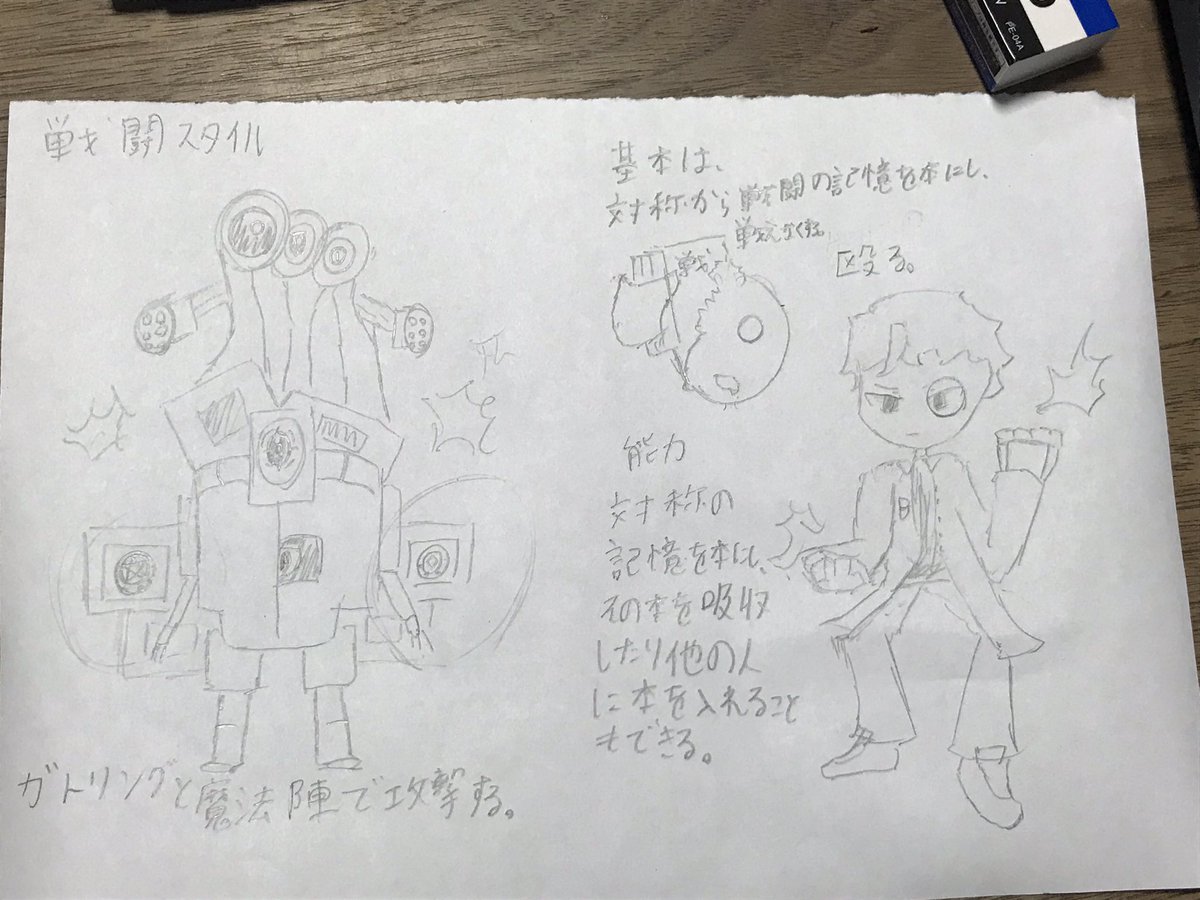 戦闘スタイル
基本は、
対称から戦闘の記憶を本にし、
戦えなくする。
戦
殴る。
能力
対称の
記憶を本にし、
その本を吸収
したり他の人
に本を入れること
もできる。
ガトリングと魔法陣で攻撃する。
B
PE-04A